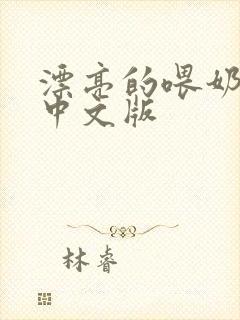 漂亮的喂奶
中文版
林睿